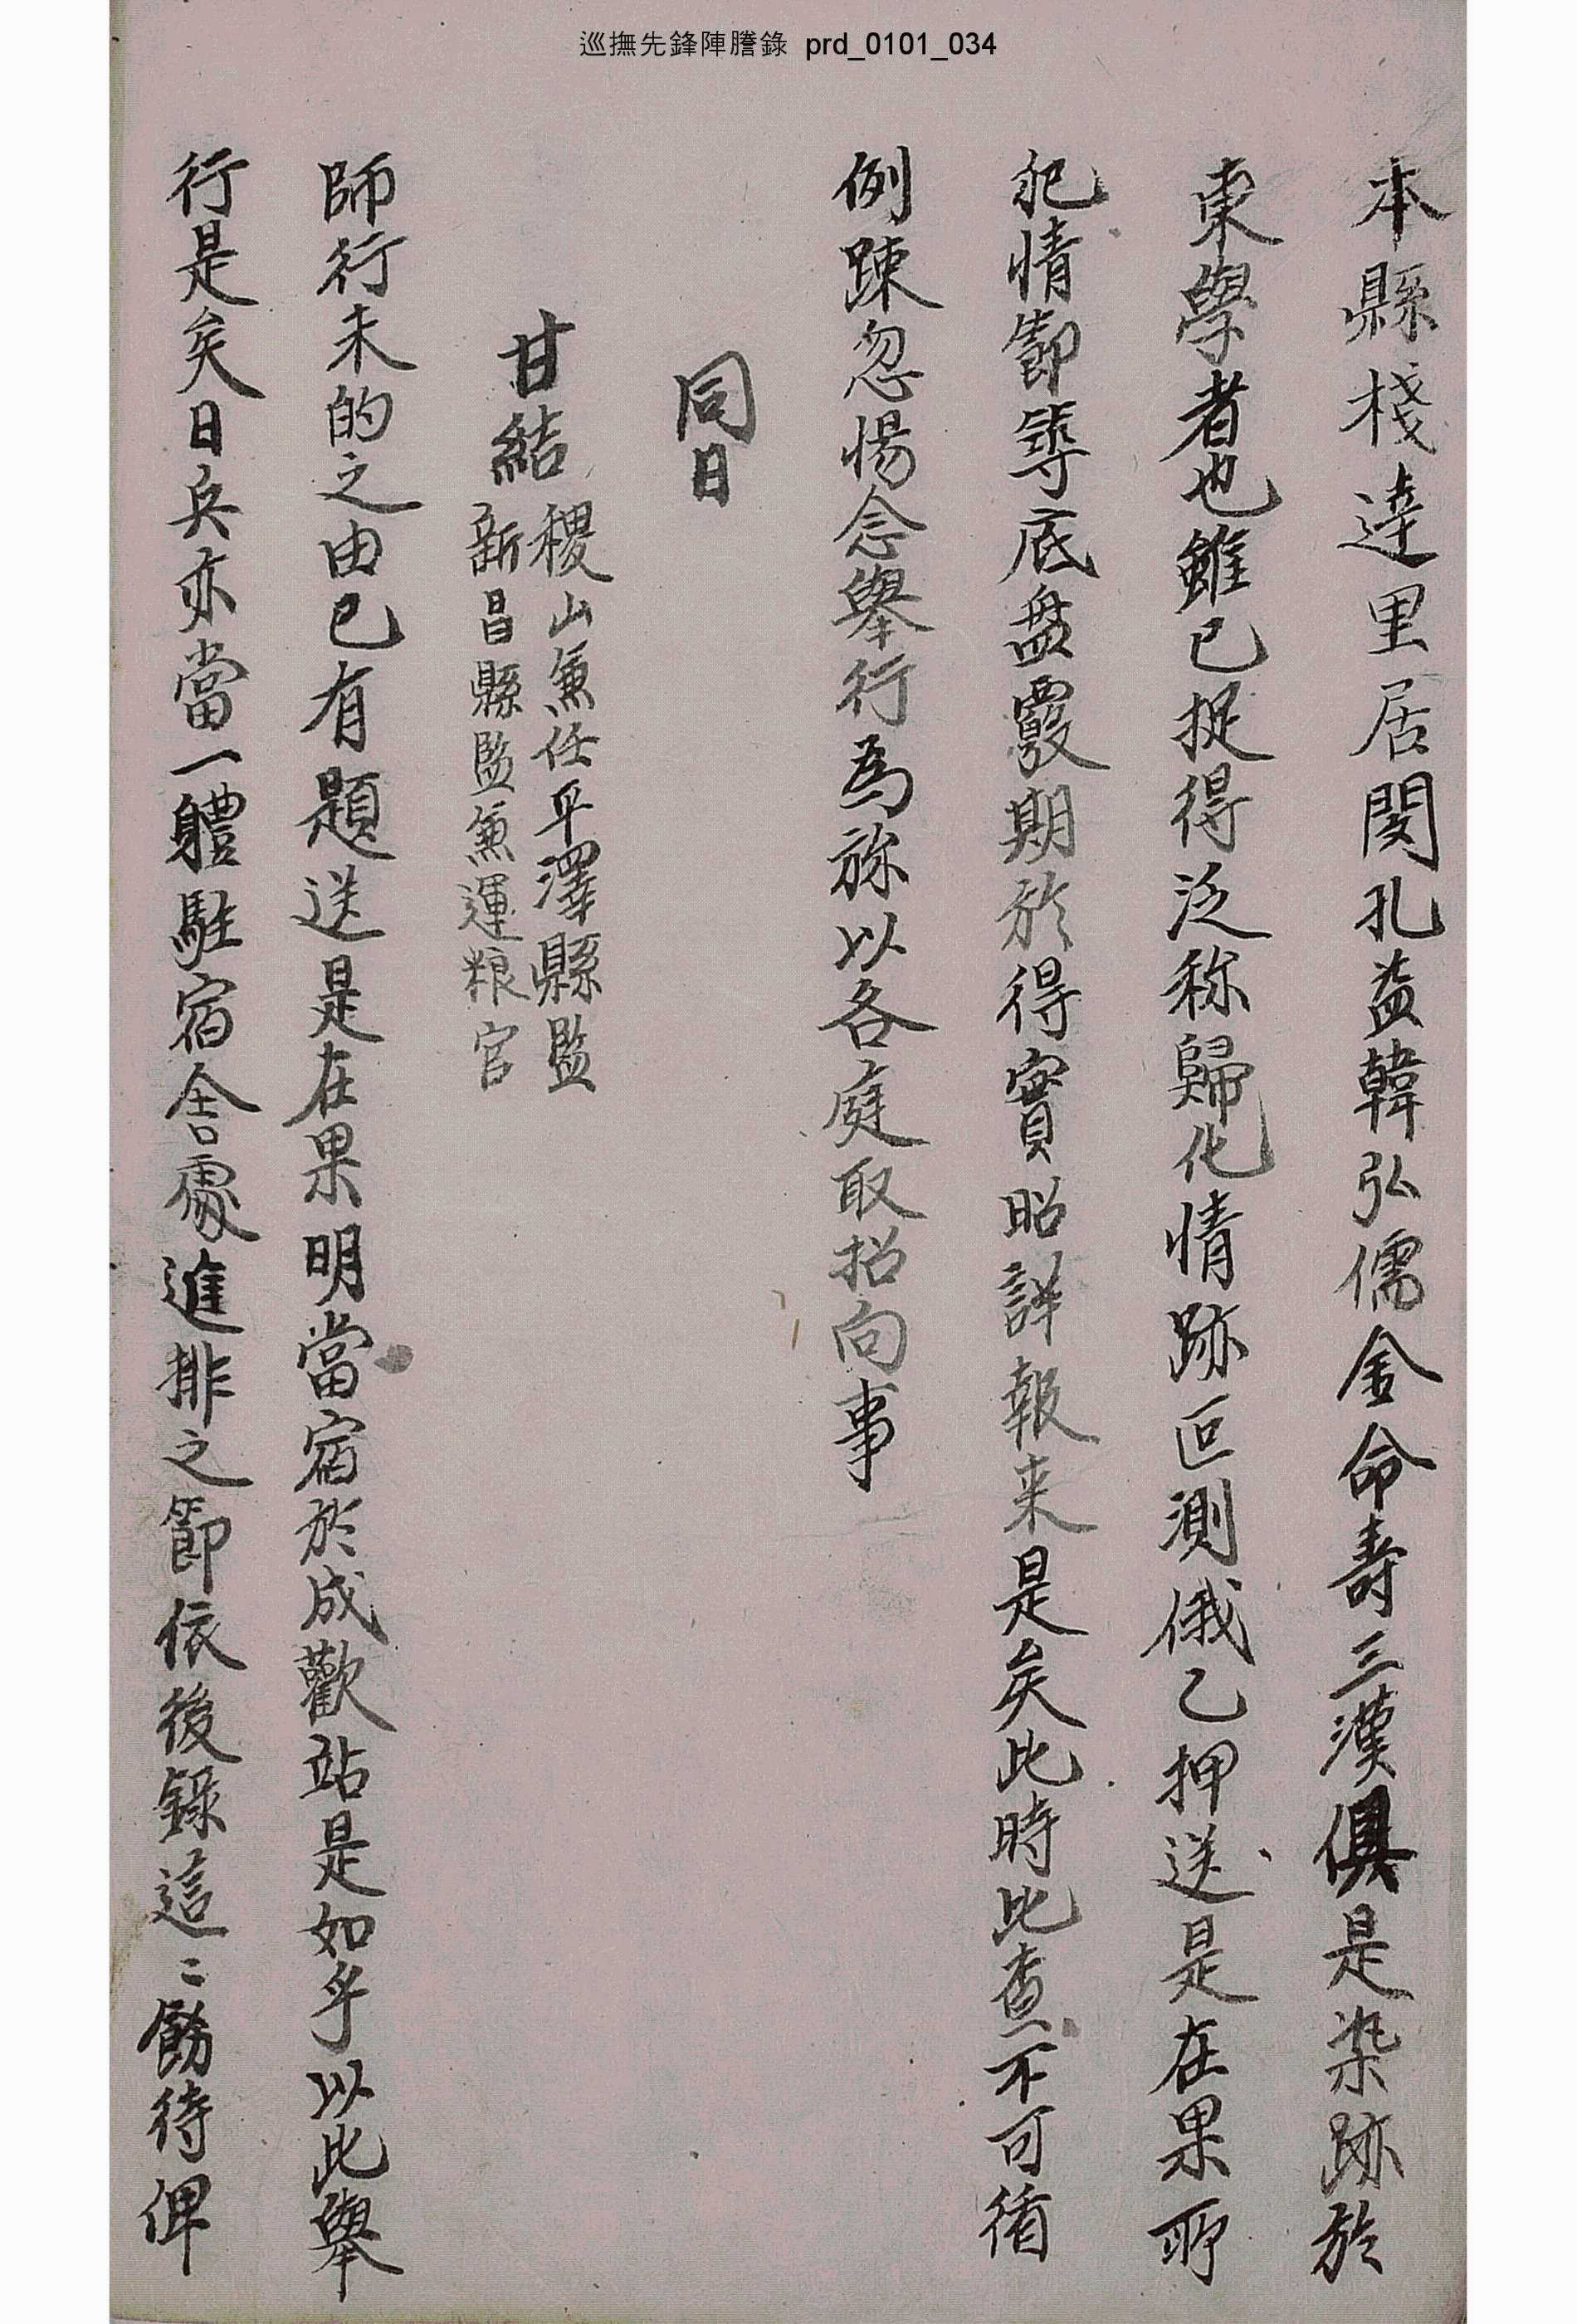 巡撫先鋒陣謄錄 prd_0101_034
本縣棧達里居閔孔益韓弘儒金命壽三漢俱是染跡於
東學者也雖已捉得泛称歸化情跡叵測俄已押送是在果所
犯情節箇底盤覈期於得實昭詳報来是矣此時此查不可循
例踈忽惕念擧行為旀以各庭取招向事
同日
甘結
稷山兼任平澤縣監
新昌縣監兼運粮官
師行未的之由已有題送是在果明當宿於成歡站是如乎以此擧
行是矣日兵亦當一軆駐宿舍處進排之節依後錄這〻飭待俾